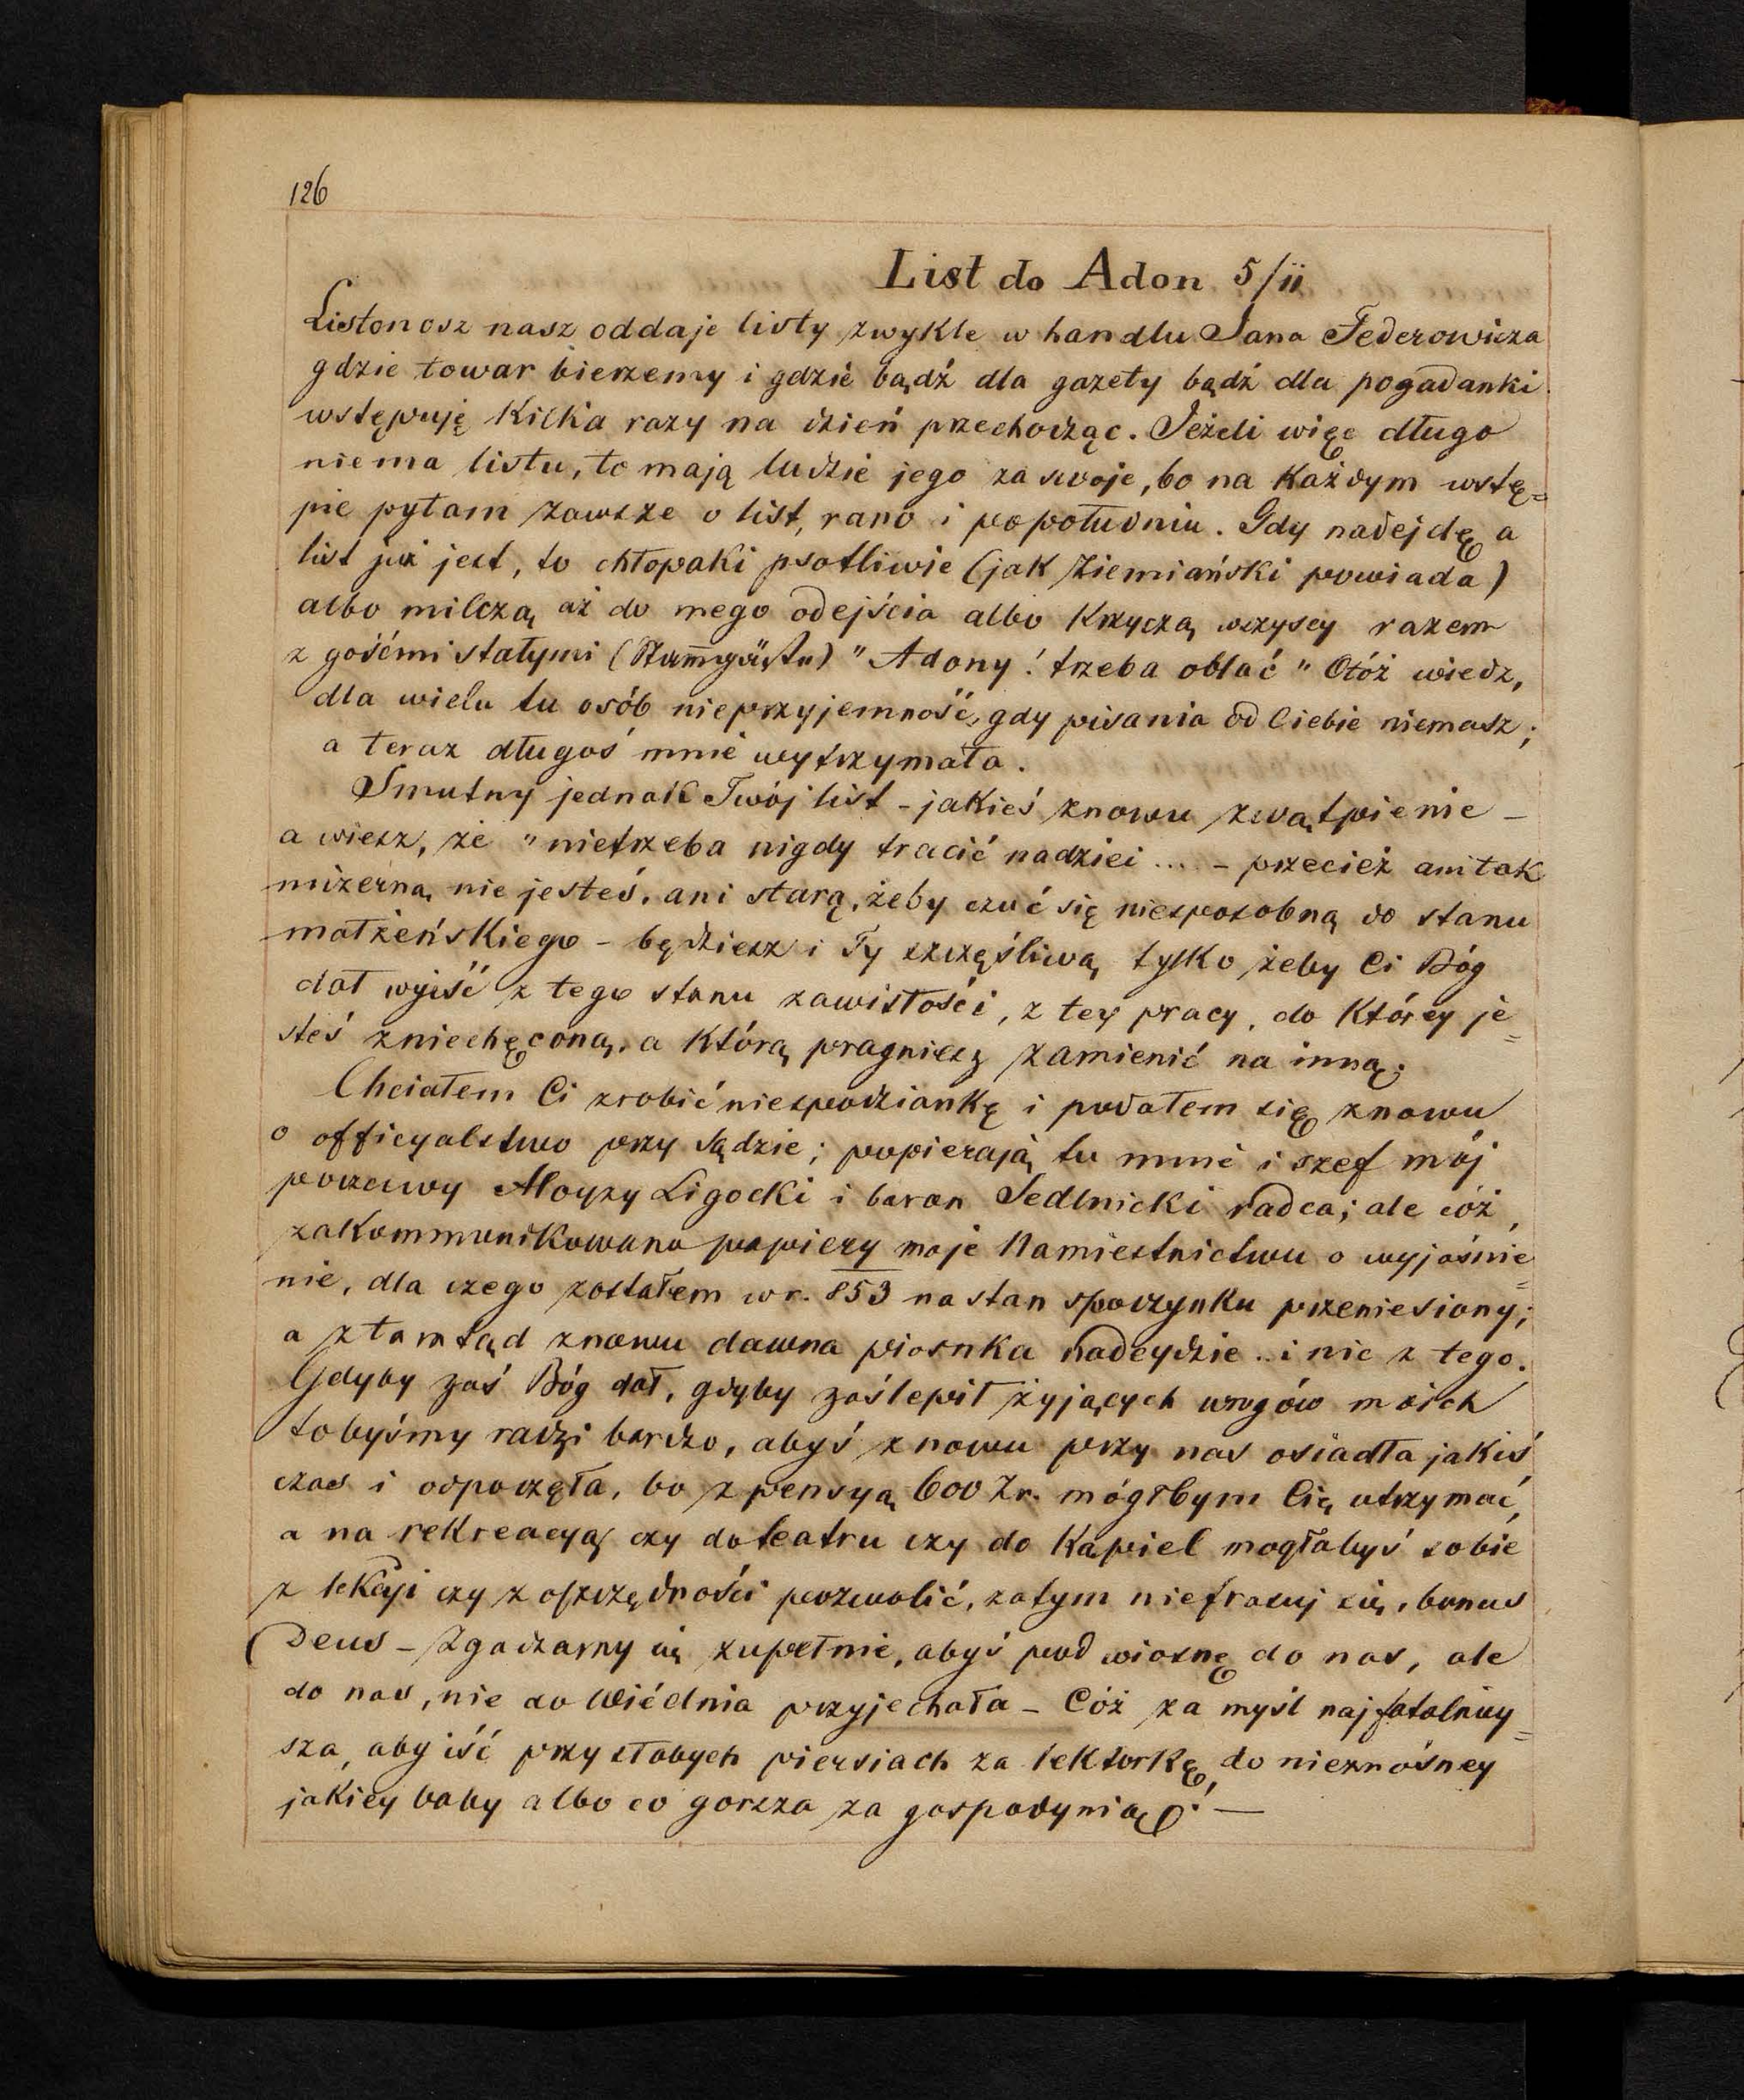 126
List do Adon 5/ii
Listonosz nasz oddaje listy zwykle w handlu Jana Federowicza
gdzie towar bierzemy i gdzie bądź dla gazety bądź dla pogadanki
wstępuję kilka razy na dzień przechodząc. Jeżeli więc długo
niema listu, to mają ludzie jego za swoje, bo na każdym wstę=
pie pytam zawsze o list, rano i popołudniu. Gdy nadejdę a
list już jest, to chłopaki psotliwie (jak Ziemiański powiada)
albo milczą aż do mego odejścia albo krzyczą wszyscy razem
z gośćmi stałymi (Stam̄gäste) "Adony! trzeba oblać" Otóż wiedz,
dla wielu tu osób nieprzyjemność, gdy pisania od Ciebie niemasz;
a teraz długoś mnie wytrzymała.
Smutny jednak Twój list - jakieś znowu zwątpienie -
a wiesz, że "nietrzeba nigdy tracić nadziei ... - przecież ani tak
mizerną nie jesteś, ani starą, żeby czuć się niesposobną do stanu
małżeńskiego - będziesz i Ty szczęśliwą tylko żeby Ci Bóg
dał wyiść z tego stanu zawisłości, z tey pracy, do którey je=
steś zniechęconą, a którą pragniesz zamienić na inną.
Chciałem Ci zrobić niespodziankę i podałem się znowu
o officyalstwo przy sądzie; popierają tu mnie i szef mój
poczciwy Aloyzy Ligocki i baron Sedlnicki radca; ale cóż,
zakommunikowano papiery moje Namiestnictwu o wyjaśnie=
nie, dla czego zostałem w r. 853 na stan spoczynku przeniesiony;
a ztamtąd znowu dawna piosnka nadeydzie .. i nic z tego.
Gdyby zaś Bóg dał, gdyby zaślepił żyjących wrogów moich
tobyśmy radzi bardzo, abyś znowu przy nas osiadła jakiś
czas i odpoczęła, bo z pensyą 600 Zr. mógłbym Cię utrzymać,
a na rekreacyą czy do teatru czy do kąpiel mogłabyś sobie
z lekcyi czy z oszczędności pozwolić, zatym niefrasuj się, bonus
Deus - Zgadzamy się zupełnie, abyś pod wiosnę do nas, ale
do nas, nie do Wiédnia przyjechała - Cóż za myśl najfatalniey=
sza, aby iść przy słabych piersiach za lektorkę, do nieznośney
jakiey baby albo co gorsza za gospodynią! —